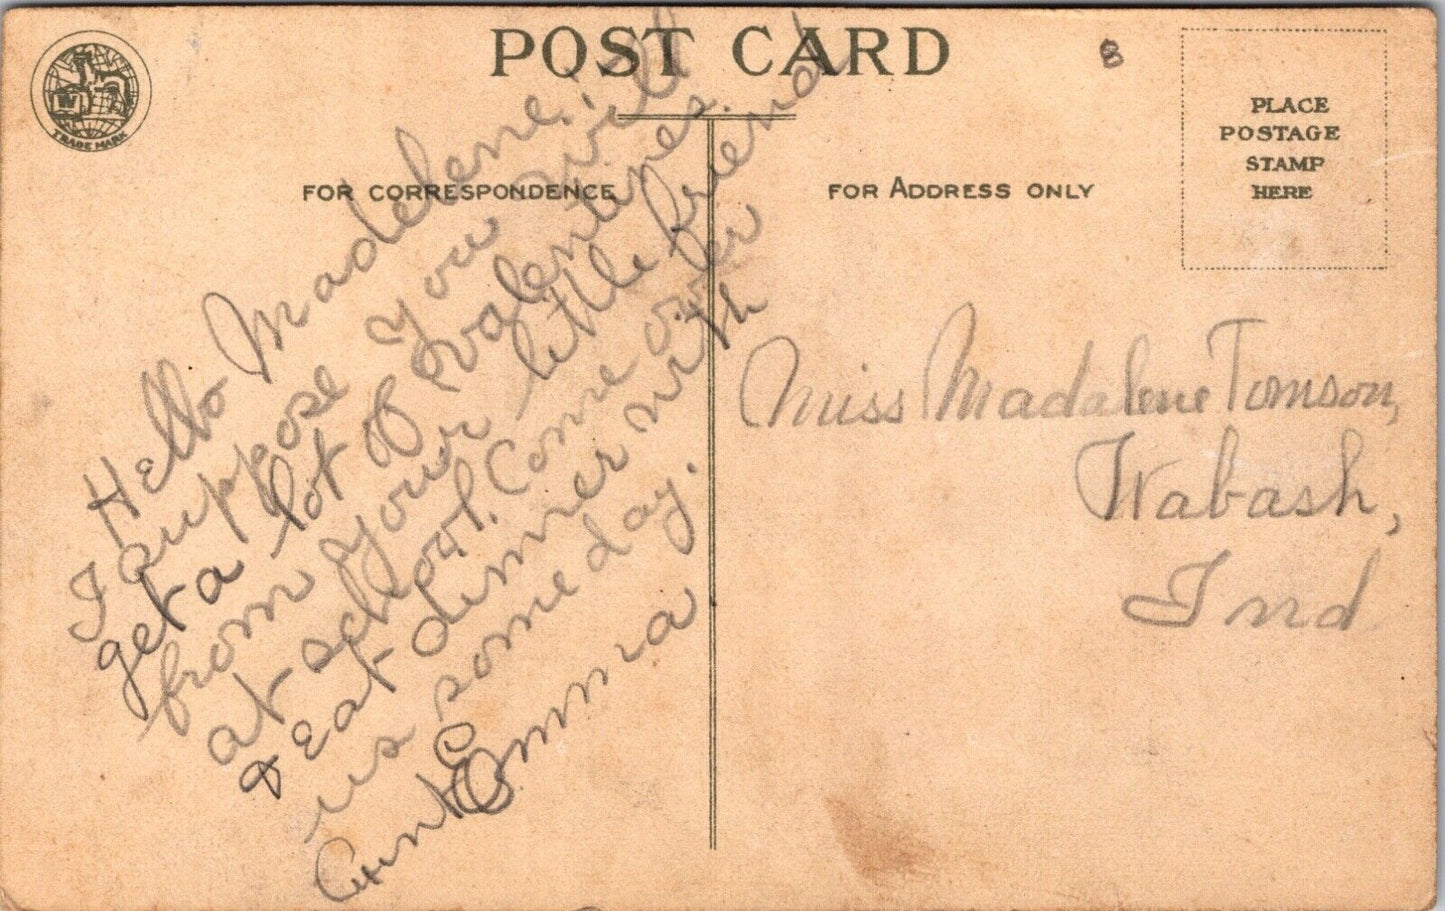 POST CARD
8
TRADE MARK
W
PLACE
POSTAGE
STAMP
HERE
FOR CORRESPONDENCE
FOR ADDRESS ONLY
Hello Madelene,
I suppose you will
get a lot of valentines.
from your little friend
at school. Come over
& eat dinner with
us some day.
Aunt Emma
Miss Madalene Tomson,
Wabash,
Ind